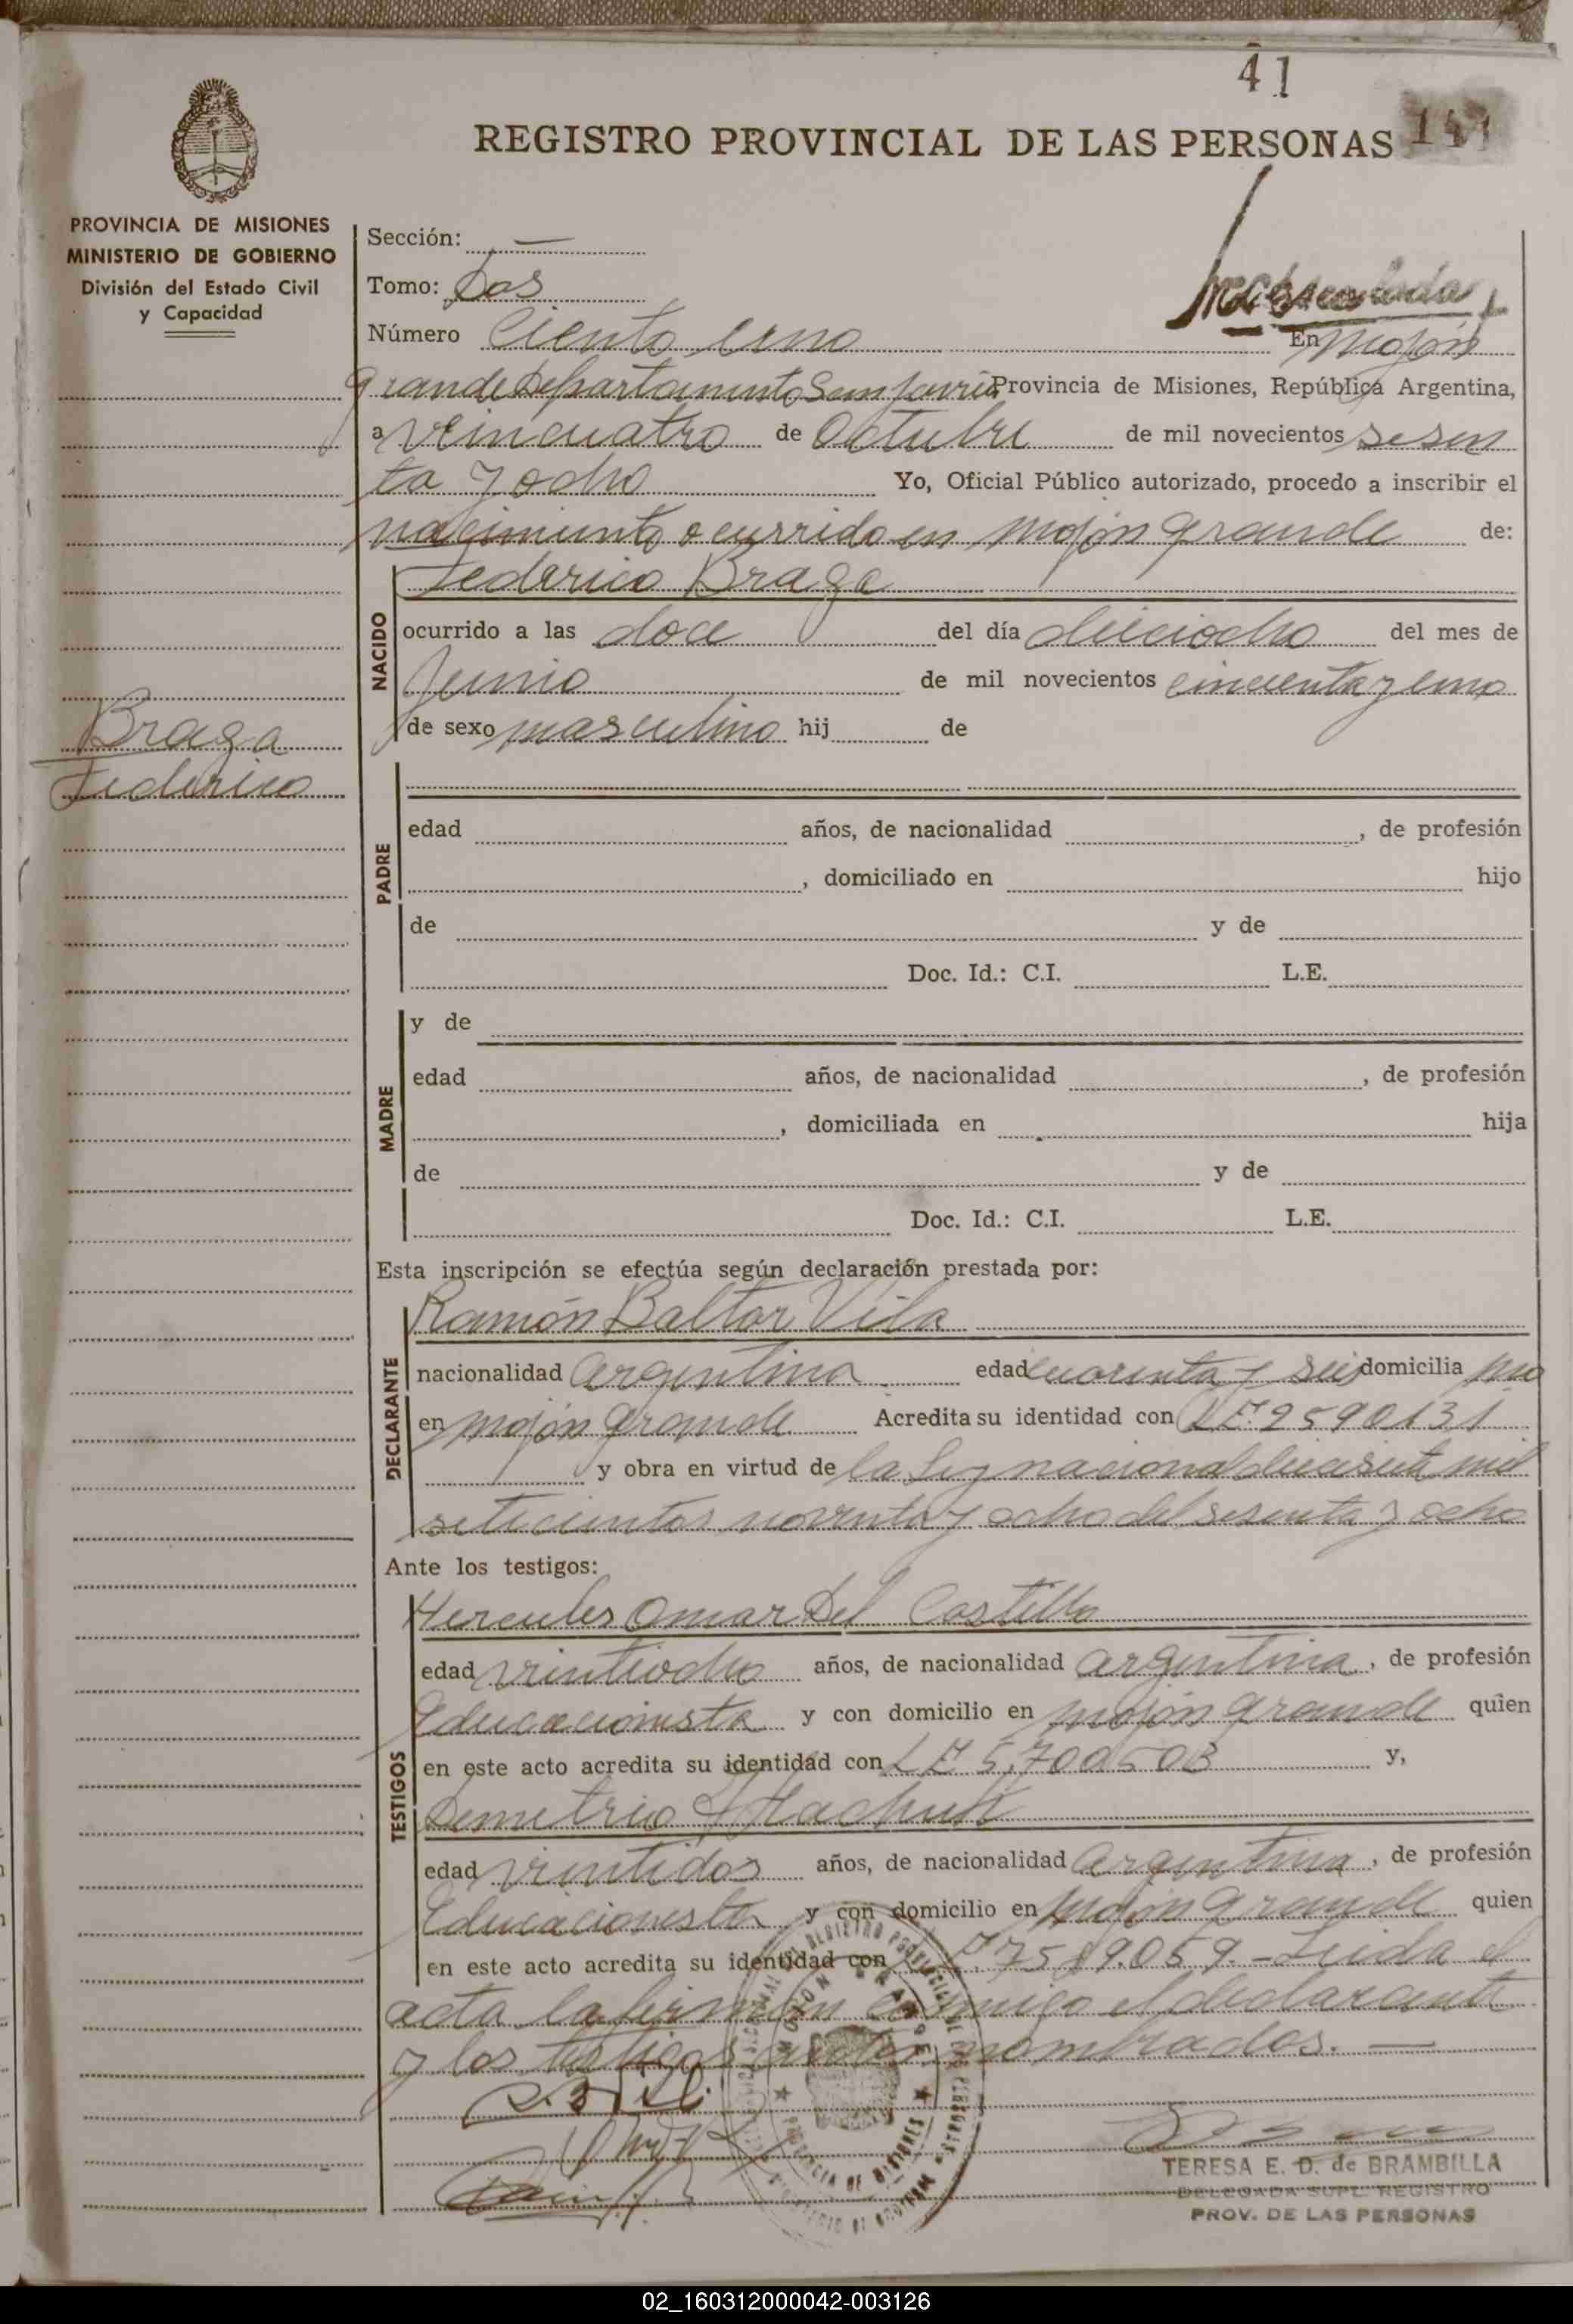 41
REGISTRO PROVINCIAL DE LAS PERSONAS 141
PROVINCIA DE MISIONES
MINISTERIO DE GOBIERNO
División del Estado Civil
y Capacidad
Sección: —
Tomo: Dos
Número Ciento uno En Mojón
grande Departamento San Javier Provincia de Misiones, República Argentina,
a veincuatro de Octubre de mil novecientos sesen
ta y ocho Yo, Oficial Público autorizado, procedo a inscribir el
nacimiento ocurrido en Mojón grande de:
NACIDO
Federico Braga
ocurrido a las doce del día dieciocho del mes de
Junio de mil novecientos cincuenta y uno
de sexo masculino hij de
Braga
Federico
PADRE
edad años, de nacionalidad , de profesión
, domiciliado en hijo
de y de
Doc. Id.: C.I. L.E.
MADRE
y de
edad años, de nacionalidad , de profesión
, domiciliada en hija
de y de
Doc. Id.: C.I. L.E.
Esta inscripción se efectúa según declaración prestada por:
DECLARANTE
Ramón Baltar Vila
nacionalidad argentina edad cuarenta y seis domicilia
en mojón grande Acredita su identidad con L.E. 2590131
y obra en virtud de la ley nacional diecisiete mil
setecientos noventa y ocho del sesenta y ocho
Ante los testigos:
TESTIGOS
Hercules Omar Del Castillo
edad veintiocho años, de nacionalidad argentina, de profesión
Educacionista y con domicilio en mojón grande quien
en este acto acredita su identidad con L E 5.700503 y,
Demetrio
edad veintidos años, de nacionalidad argentina, de profesión
Educacionista y con domicilio en mojón grande quien
en este acto acredita su identidad con L.E. 7589.059.- Leida el
acta la firman conmigo el declarante
y los testigos antes nombrados. —
TERESA E. D. de BRAMBILLA
DELEGADA SUPL. REGISTRO
PROV. DE LAS PERSONAS
02_160312000042-003126